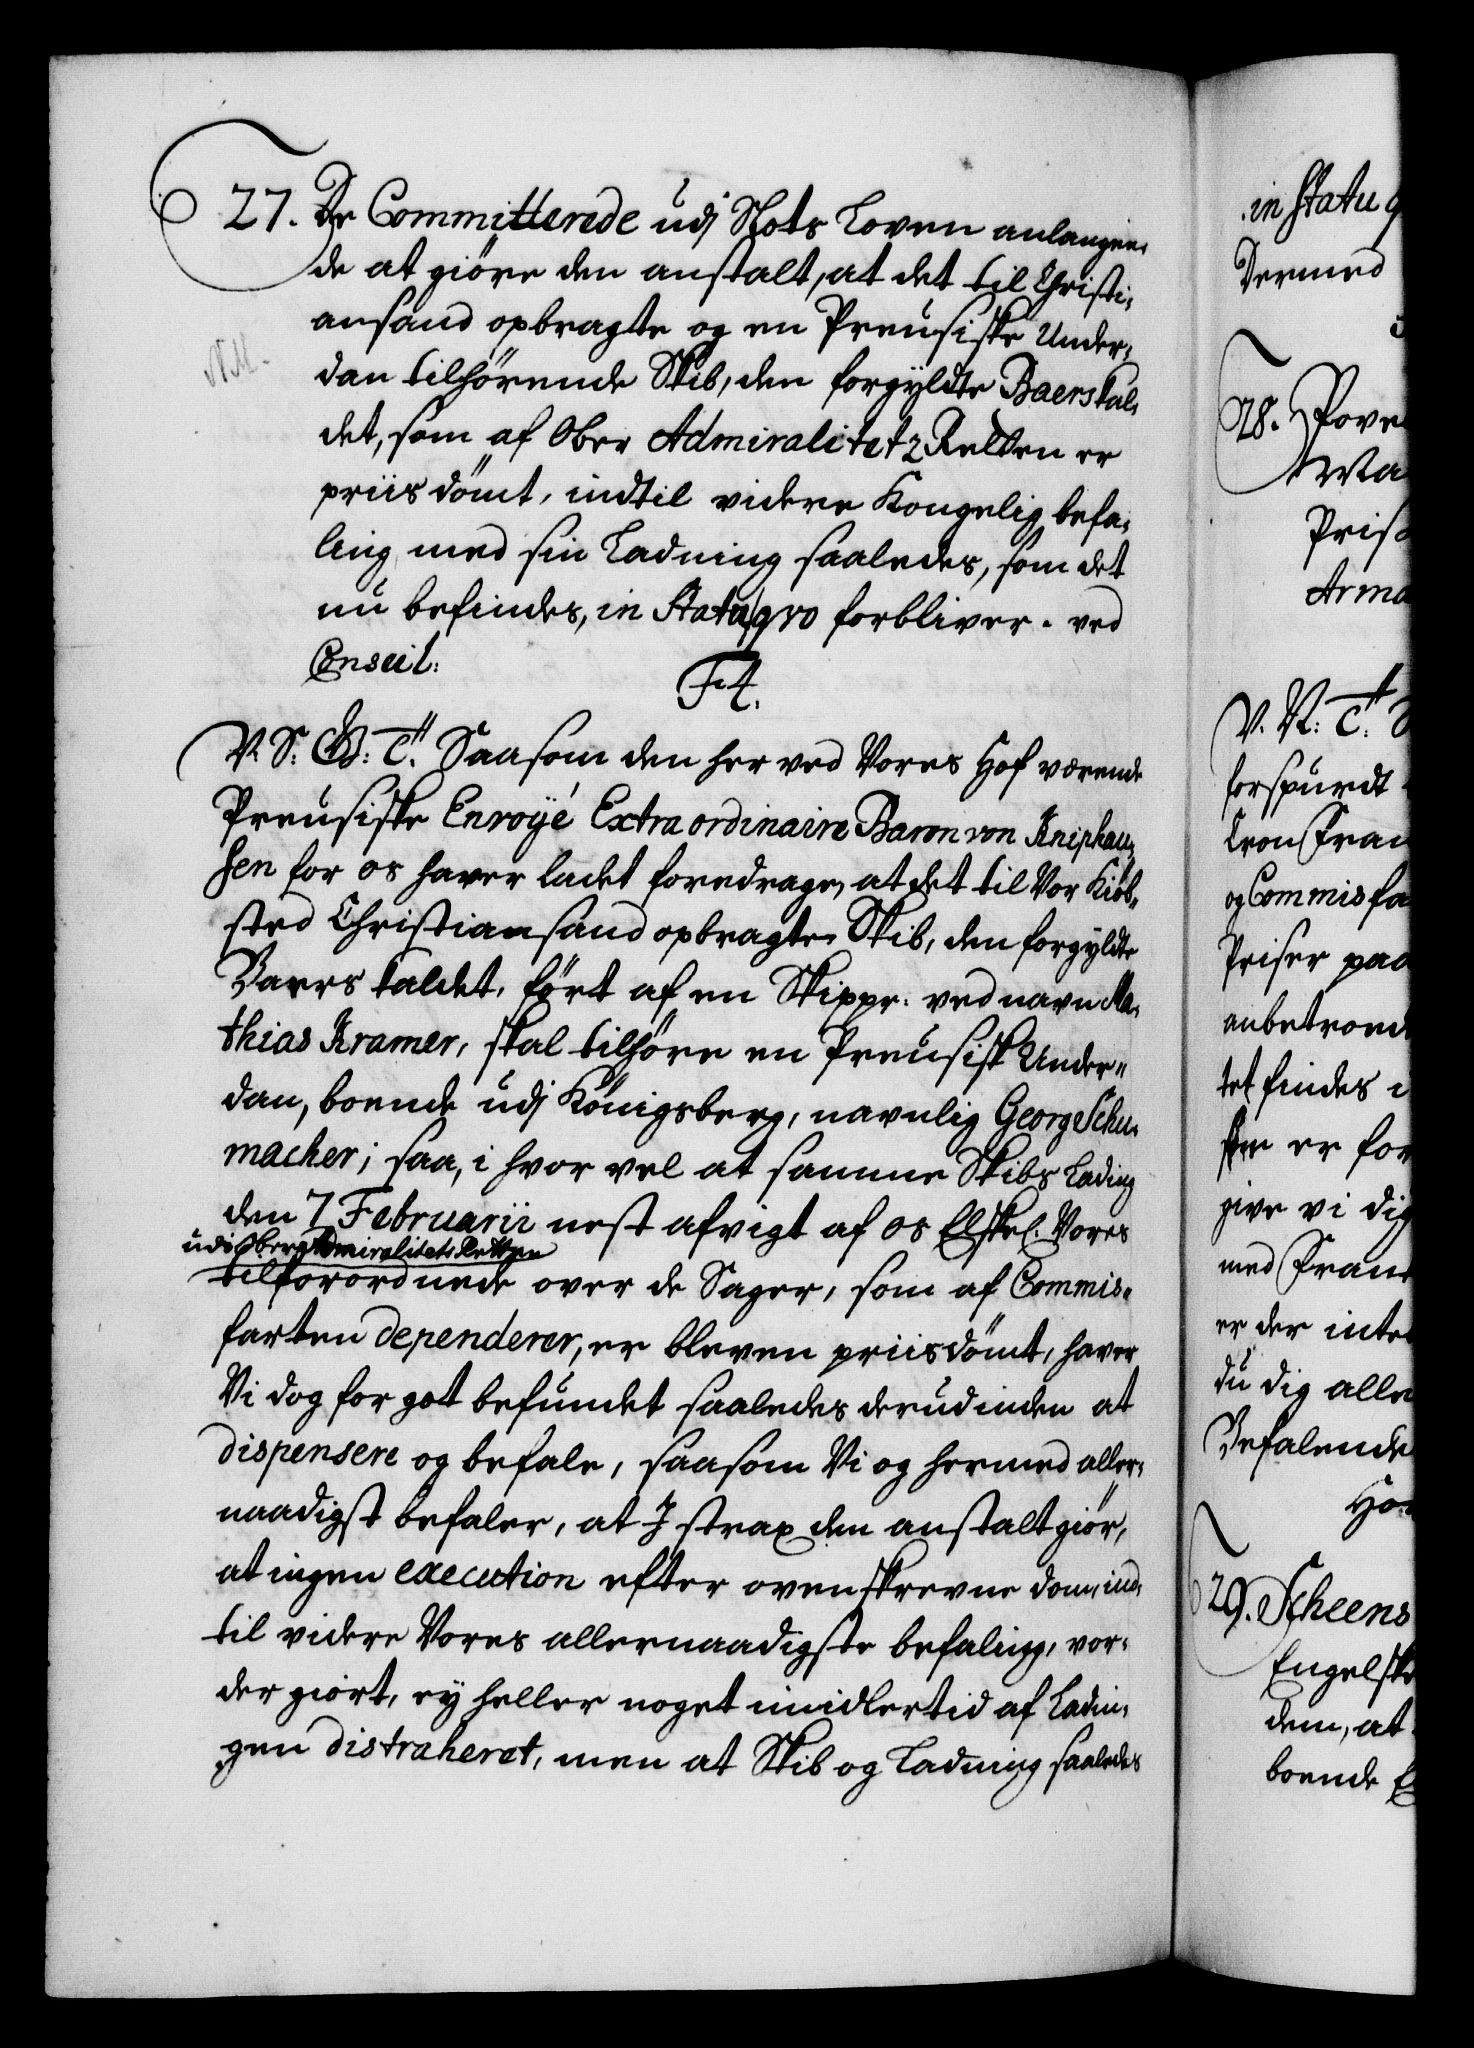 27. De Committerede udj Slots Loven anlangen,
de at giöre den anstalt, at det til Christi,
ansand opbragte og en Preusiske Under,
dan tilhörende Skib, den forgyldte Baerskal,
det, som af Ober Admiralitetz Retten er
priis dömt, indtil videre Kongelig befa,
ling med sin Ladning saaledes, som det
nu befindes, in Statu qvo forbliver. ved
Conseil:
F4.
V. S. G. T. Saasom den her ved Vores Hof værende
Preusiske Envoyé Extraordinaire Baron von Kniphau,
sen for os haver ladet foredrage, at det til Vor Kiöb,
sted Christiansand opbragte Skib, den forgyldte
Baers kaldet, fört af en Skippr: ved navn Ma,
thias Kramer, skal tilhöre en Preusisk Under,,
dan, boende udj Königsberg, navnlig Georg Schu,
macher; saa, i hvor vel at samme Skibs Lading
den 7 Februarii nest afvigt af os Elskel. Vores
udi Ober Admiralitets Retten
tilforordnede over de Sager, som af Commis,,
farten dependerer, er bleven priisdömt, haver
Vi dog for got befundet saaledes derudinden at
dispensere og befale, saasom Vi og hermed aller,
naadigst befaler, at I strax den anstalt giör,
at ingen execution efter ovenskrevne dom, ind,
til videre Vores allernaadigste befaling, vor,
der giort, ey heller noget imidlertid af Ladin,
gen distraheret, men at Skib og Ladning saaledes
in Statu q
Dermed
28. Pove
Wa
Pris
Arma
V. N: T:
forspurdt
Cron Fran
og Commisfa
Priser paa
anbetroed
tet findes i
er for
give vi dig
med Fran
er der inte
du dig alle
Befalende
29. Scheens
Engelske
dem, at
boende E